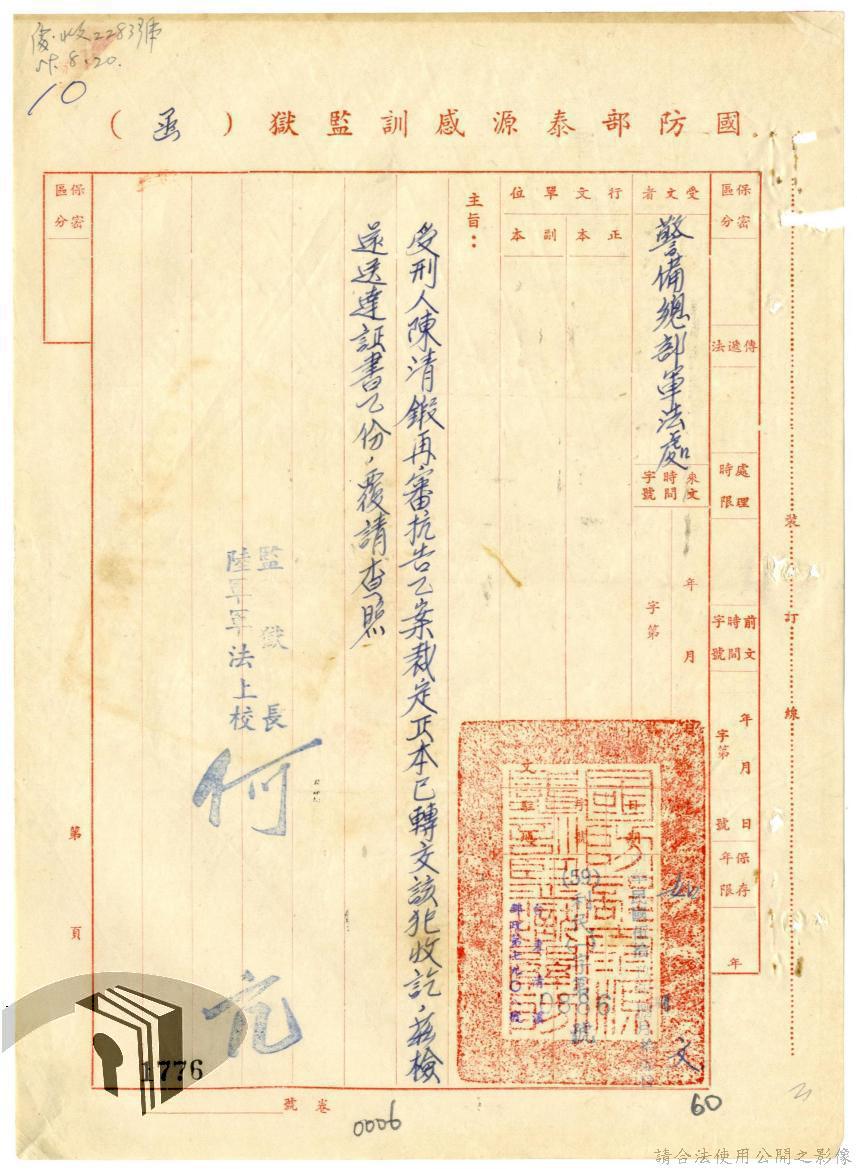 收2283號
8.20.
10
國防部泰源感訓監獄(函)
保密區分
傳遞法
處理時限
前文時間字號
年 月 日
字第 號
保存年限
年
受文者
警備總部軍法處
來文時間字號
年 月
字第
行文單位
正本
副本
主旨:
受刑人陳清鍛再審抗告乙案裁定正本已轉交該犯收訖,茲檢
還送達証書乙份,覆請查照
監獄長
陸軍軍法上校
何
保密區分
第 頁
裝訂線
日期
(59)
號
文
1776
卷 號
0006
60
請合法使用公開之影像